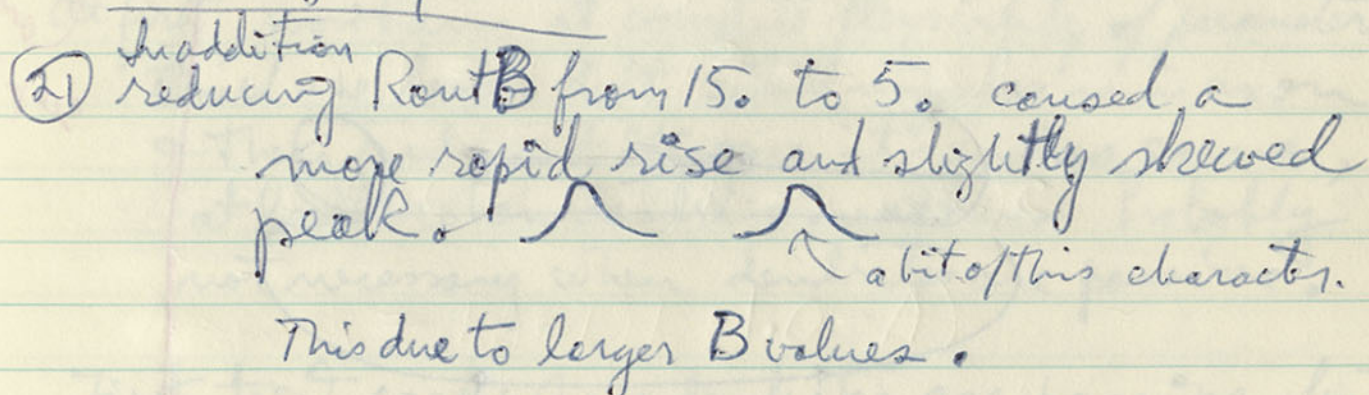 In addition
(21) reducing RoutB from 15. to 5. caused a
more rapid rise and slightly skewed
peak.
a bit of this character.
This due to larger B values.